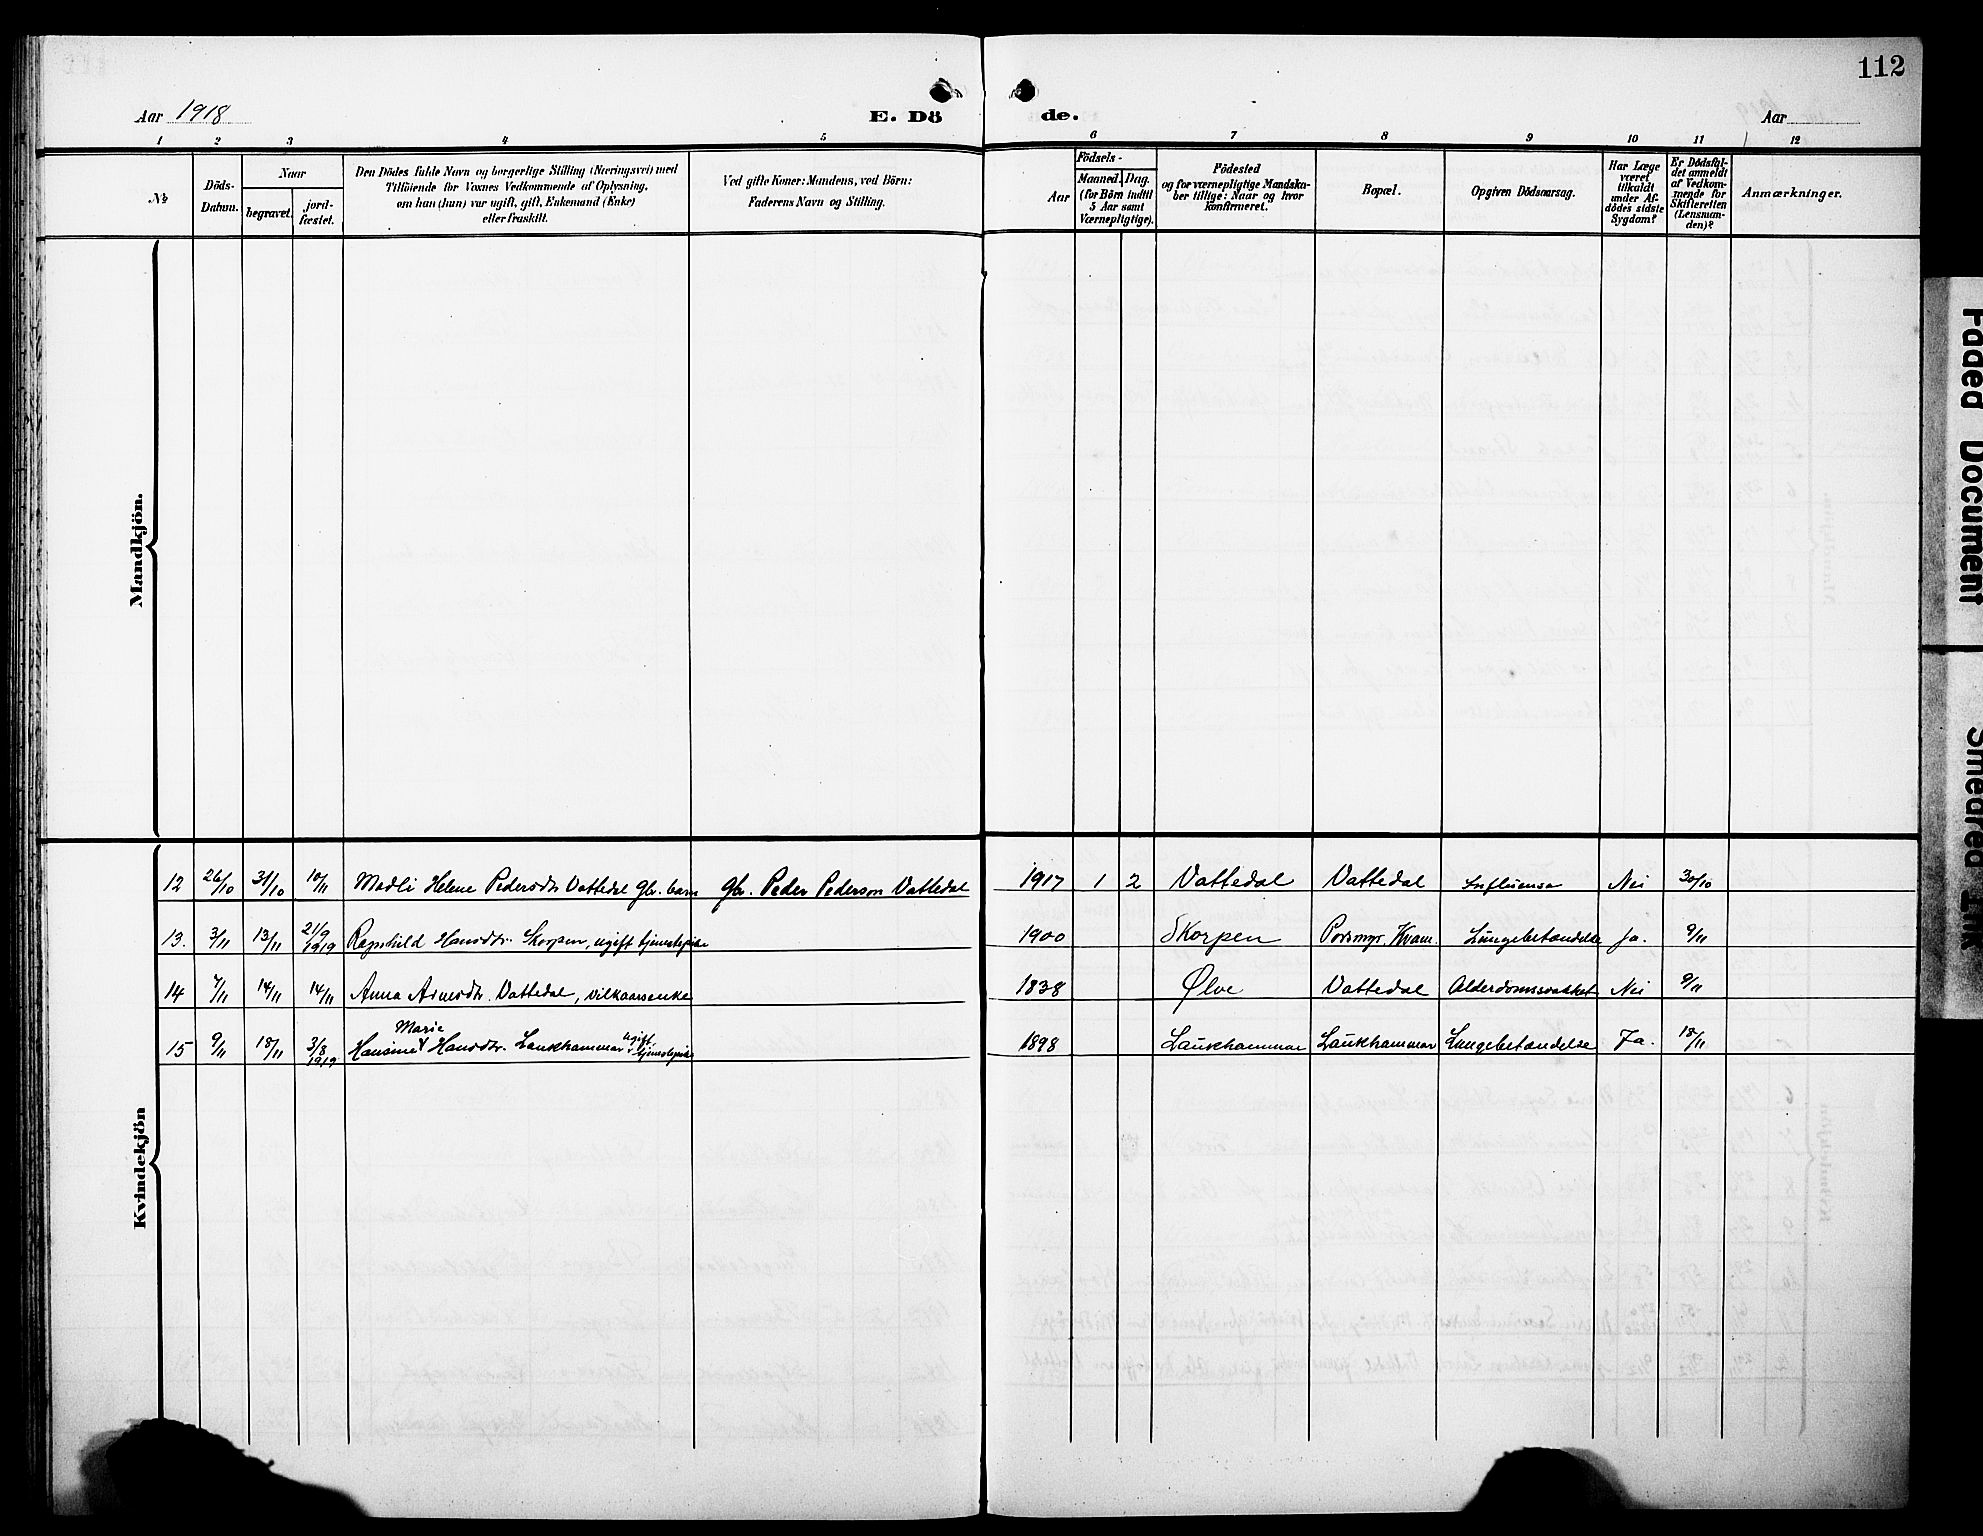 112
Aar 1918
E. Dö
de.
Aar
1 2 3 4 5 6 7 8 9 10 11 12
№
Döds-
Datum.
Naar
begravet.
jord-
fæstet.
Den Dödes fulde Navn og borgerlige Stilling (Næringsvei) med
Tilföiende for Voxnes Vedkommende af Oplysning,
om han (hun) var ugift, gift, Enkemand (Enke)
eller fraskilt.
Ved gifte Koner: Mandens, ved Börn:
Faderens Navn og Stilling.
Födsels-
Aar
Maaned. Dag.
(for Börn indtil
5 Aar samt
Værnepligtige).
Födested
og for værnepligtige Mandska-
ber tillige: Naar og hvor
konfirmeret.
Bopæl.
Opgiven Dödsaarsag.
Har Læge
været
tilkaldt
under Af-
dödes sidste
Sygdom?
Er Dödsfal-
det anmeldt
af Vedkom-
mende for
Skifteretten
(Lensman-
den)?
Anmærkninger.
Mandkjön.
Kvindekjön
12 26/10 31/10 10/11 Modli Helene Pedersdtr Vattedal Gbr. barn Gbr. Peder Pederson Vattedal 1917 1 2 Vattedal Vattedal Influensa Nei 30/10
13. 3/11 13/11 21/9 1919 Ragnhild Hansdtr. Skorpen, ugift tjenestepike 1900 Skorpen Kvam. Lungebetændelse Ja. 9/11
14 7/11 14/11 14/11 Anna Arnesdtr. Vattedal, vilkaarsenke 1838 Ølve Vattedal Alderdomssvakhet Nei 9/11
15 9/11 18/11 3/8 1919 Hansine Marie Hansdtr. Laukhammar ugift tjenestepike 1898 Laukhammar Laukhammar Lungebetændelse Ja. 18/11
Faded Document
Smeared Ink